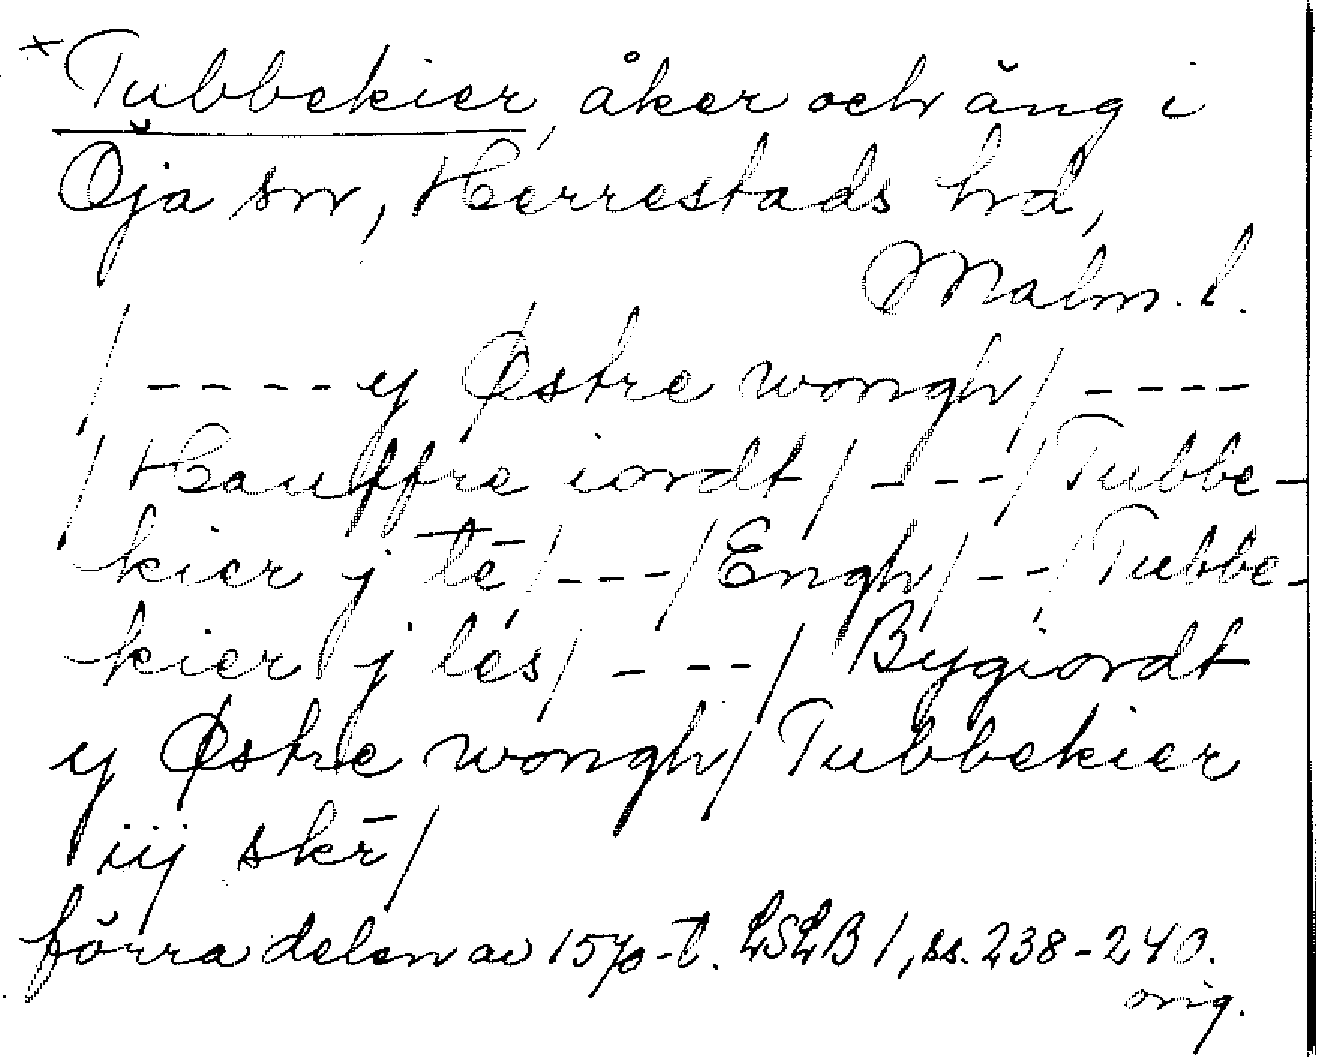 *Tubbekier, åker och äng i
Öja sn, Herrestads hd,
Malm. l.
/ ---- y Østre wongh / ----
/ Hauffre iordt / --- / Tubbe-
kier j tē / --- / Engh / -- / Tubbe-
kier j les / --- / Bygiordt
y Østre wongh / Tubbekier
iij skē /
förra delen av 1570-t. LSLB 1, ss. 238-240.
orig.